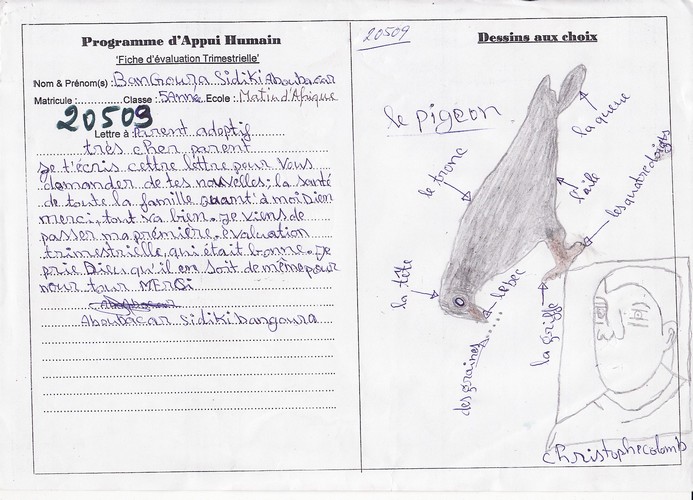 Programme d'Appui Humain
'Fiche d'évaluation Trimestrielle'
Nom & Prénom(s) : BanGoura Sidiki Aboubacar
Matricule : Classe : 5Année Ecole : Matin d'Afrique
20509
Lettre à Parent adoptif
très cher parent
Je t'écris cettre lèttre pour vous
domander de tes nouvelles. la santé
de toute la famille quant'à moi Dien
merci, tout va bien. je viens de
passer ma première évaluation
trimestrielle, qui était bonne. je
prie Dieu qu'il en soit de même pour
nour tour MERCi
AbouBacar Sidiki bangoura
20509
Dessins aux choix
le pigeon
la queue
le tronc
l'aile
les quatre doigts
la tête
le bec
la griffe
des graines
christophe colomb